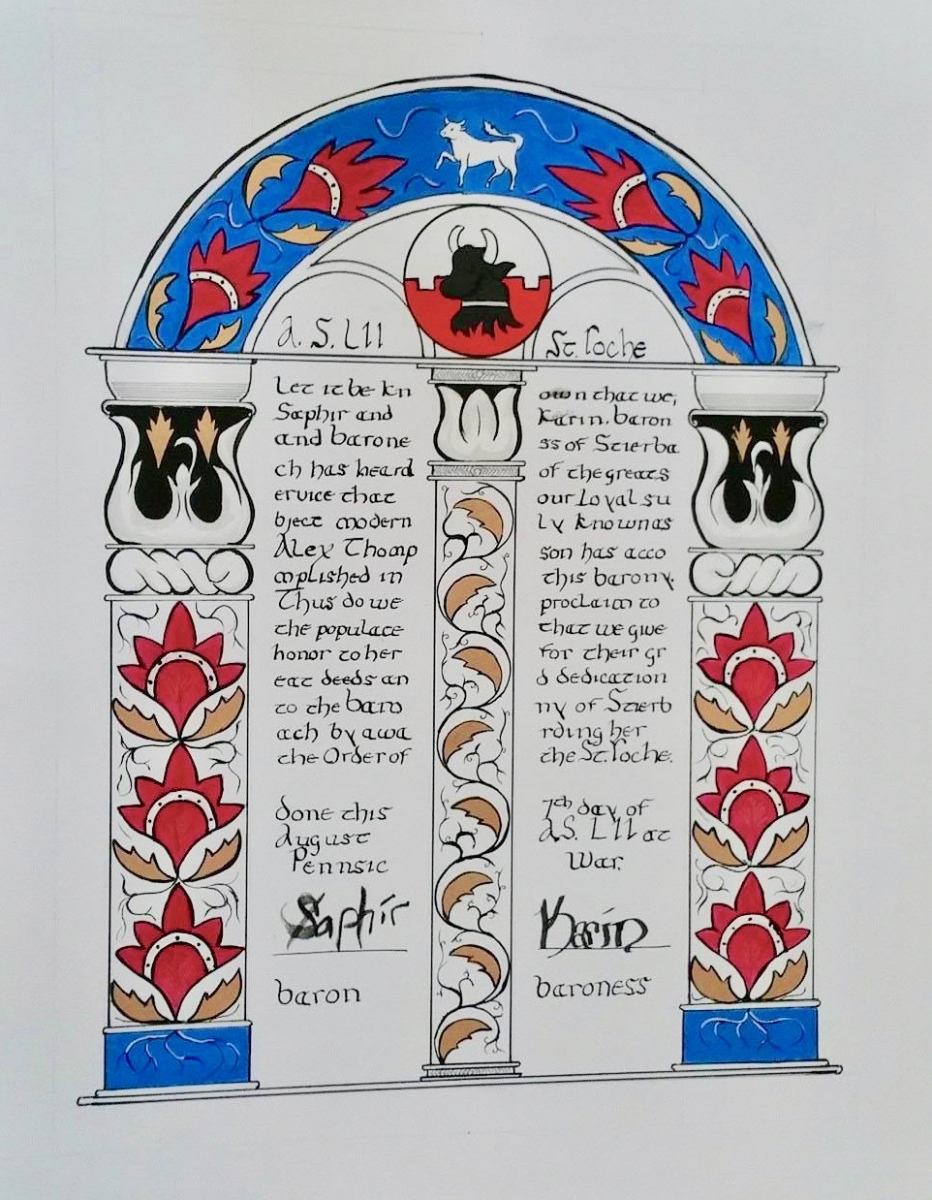 A. S. LII St. Roche
Let it be kn own that we,
Saphir and Karin, baron
and barone ss of Stierba
ch has heard of the greats
ervice that our loyal su
bject modern ly known as
Alex Thomp son has acco
mplished in this barony.
Thus do we proclaim to
the populace that we give
honor to her for their gr
eat deeds an d dedication
to the baro ny of Stierb
ach by awa rding her
the Order of the St. Roche.
done this 7th day of
August A.S. LII at
Pennsic War.
Saphir Karin
baron baroness